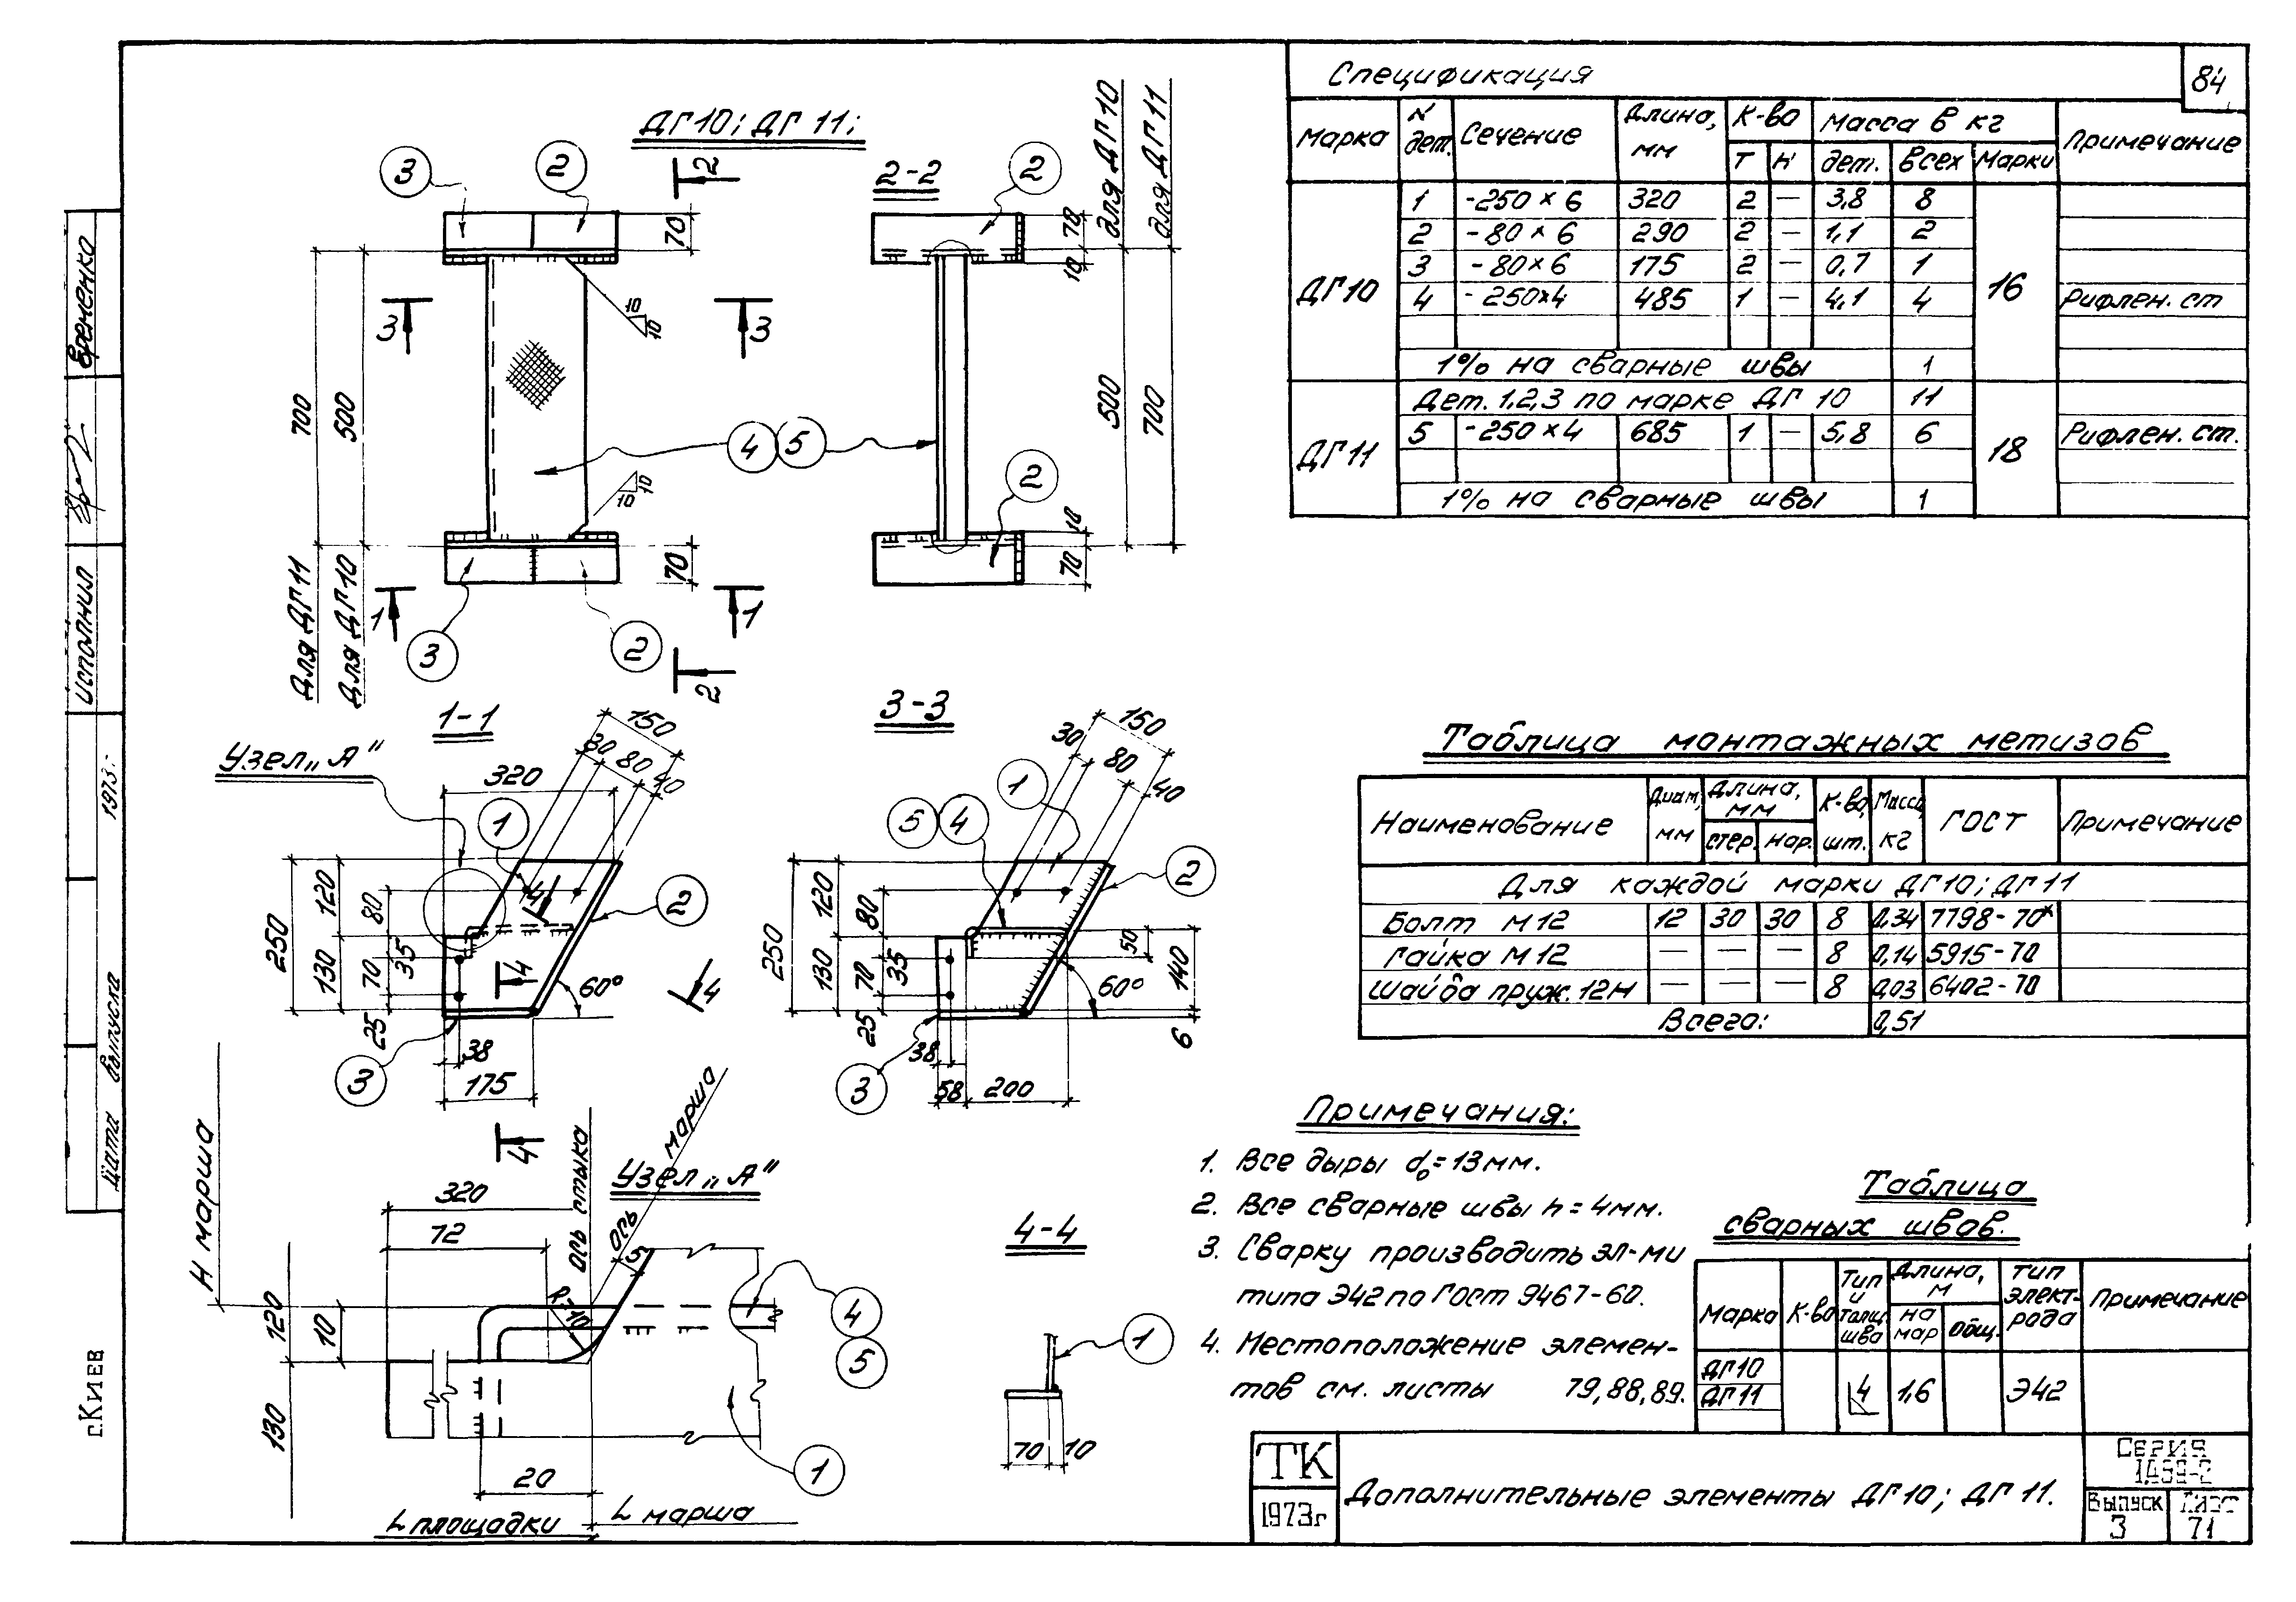 84
Спецификация
Марка | N дет. | Сечение | Длина, мм | К-во Т Н | Масса в кг дет. всех Марки | Примечание
ДГ10 | 1 | -250×6 | 320 | 2 | — | 3,8 | 8 | 16
2 | -80×6 | 290 | 2 | — | 1,1 | 2
3 | -80×6 | 175 | 2 | — | 0,7 | 1
4 | -250×4 | 485 | 1 | — | 4,1 | 4 | Рифлен. ст
1% на сварные швы | 1
ДГ11 | Дет. 1,2,3 по марке ДГ10 | 11 | 18
5 | -250×4 | 685 | 1 | — | 5,8 | 6 | Рифлен. ст.
1% на сварные швы | 1
ДГ10; ДГ11;
3 2 2
70
3 3
10 10
700 500
4 5
10 10
70
для ДГ11
для ДГ10
1 1
3 2 2
2-2
2
70 10
для ДГ10
для ДГ11
500 700
2
10 70
1-1
Узел „А"
320
150
30 80 40
1
250 120 130 80 35 70 25
4 4 4 4
2
60°
3
38
175
3-3
150
30 80 40
1
5 4
250 120 130 80 35 70 25
2
50 140 6
60°
3
38
58 200
Узел „А"
H марша
320
72
ось стыка
ось марша
5
R=10
120 10
130
4
5
1
20
L площадки
L марша
4-4
1
70 10
Таблица монтажных метизов
Наименование | Диам, мм | Длина, мм стер. нар. | К-во, шт. | Масса, кг | ГОСТ | Примечание
Для каждой марки ДГ10; ДГ11
Болт М12 | 12 | 30 | 30 | 8 | 0,34 | 7798-70*
Гайка М12 | — | — | — | 8 | 0,14 | 5915-70
Шайба пруж. 12Н | — | — | — | 8 | 0,03 | 6402-70
Всего: | 0,51
Примечания:
1. Все дыры d₀=13мм.
2. Все сварные швы h=4мм.
3. Сварку производить эл-ми
типа Э42 по ГОСТ 9467-60.
4. Местоположение элемен-
тов см. листы 79,88,89.
Таблица
сварных швов.
Марка | К-во | Тип и толщ. шва | Длина, м на мар общ. | Тип элект-рода | Примечание
ДГ10
ДГ11 | 4 | 1,6 | Э42
ТК
1973г
Дополнительные элементы ДГ10; ДГ11.
Серия
1.459-2
Выпуск 3
Лист 71
Еременко
Исполнил
1973.-
Дата выпуска
г.Киев